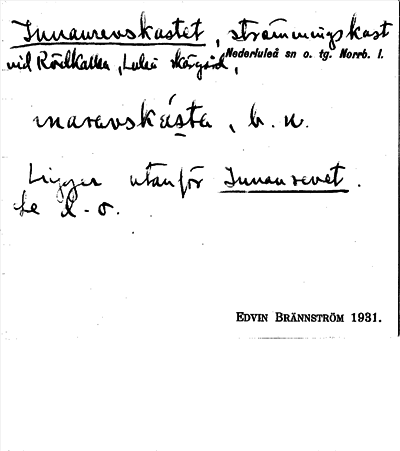 Innanrevskastet, strömmingskast
vid Rödkallen, Luleå skärgård,
Nederluleå sn o. tg. Norrb. l.
ınaravskásta, b. n.
Ligger utanför Innanrevet.
Se d. o.
EDVIN BRÄNNSTRÖM 1931.